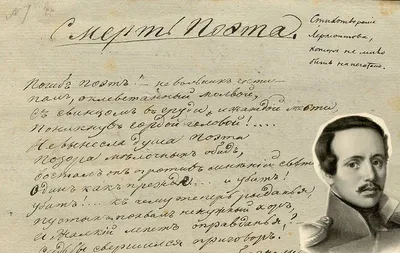 Смерть Поэта.
Стихотворение
Лермонтова,
которое не
быть напечатано.
Погибъ Поэтъ! — невольникъ чести
Палъ, оклеветанный молвой,
Съ свинцомъ въ груди, и жаждой мести,
Поникнувъ гордой головой!....
Не вынесла душа Поэта
Позора мелочныхъ обидъ,
Возсталъ онъ противъ мнѣній свѣта
Одинъ какъ прежде.... и убитъ!
Убитъ!... къ чему теперь рыданья,
Пустыхъ похвалъ ненужный хоръ,
И жалкій лепетъ оправданья!
Судьбы свершился приговоръ!